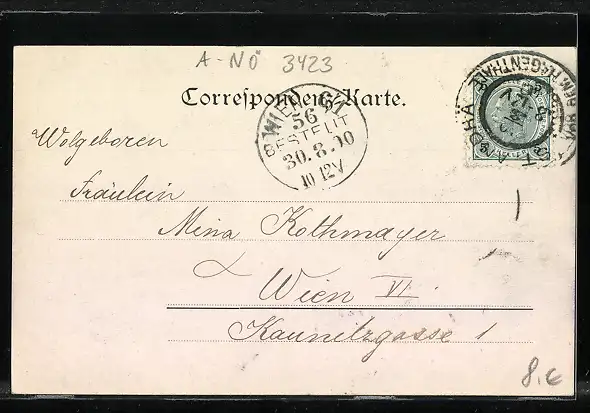 A-NÖ 3423
Correspondenz-Karte.
WIEN 6/1
56
BESTELLT
30.8.00
10-12V
Wolgeboren
Fräulein
Mina Kothmayer
Wien VI.
Kaunitzgasse 1
8.€